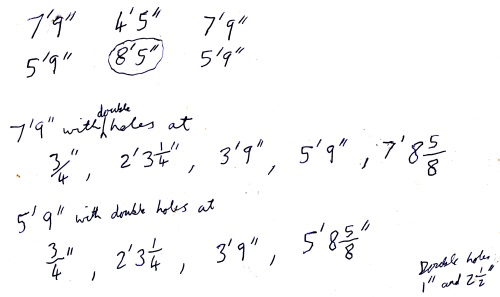 7'9" 4'5" 7'9"
5'9" 8'5" 5'9"
7'9" with double holes at
3/4", 2'3 1/4", 3'9", 5'9", 7'8 5/8
5'9" with double holes at
3/4", 2'3 1/4, 3'9", 5'8 5/8"
Double holes
1" and 2 1/2"